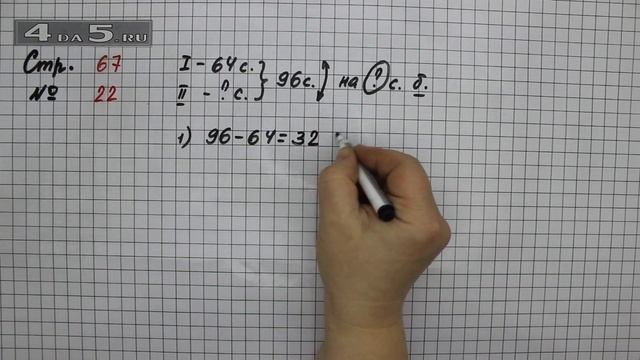 4DA5.RU
Стр. 67 I - 64 с. } 96 с. на ? с. б.
№ 22 II - ? с.
1) 96 - 64 = 32